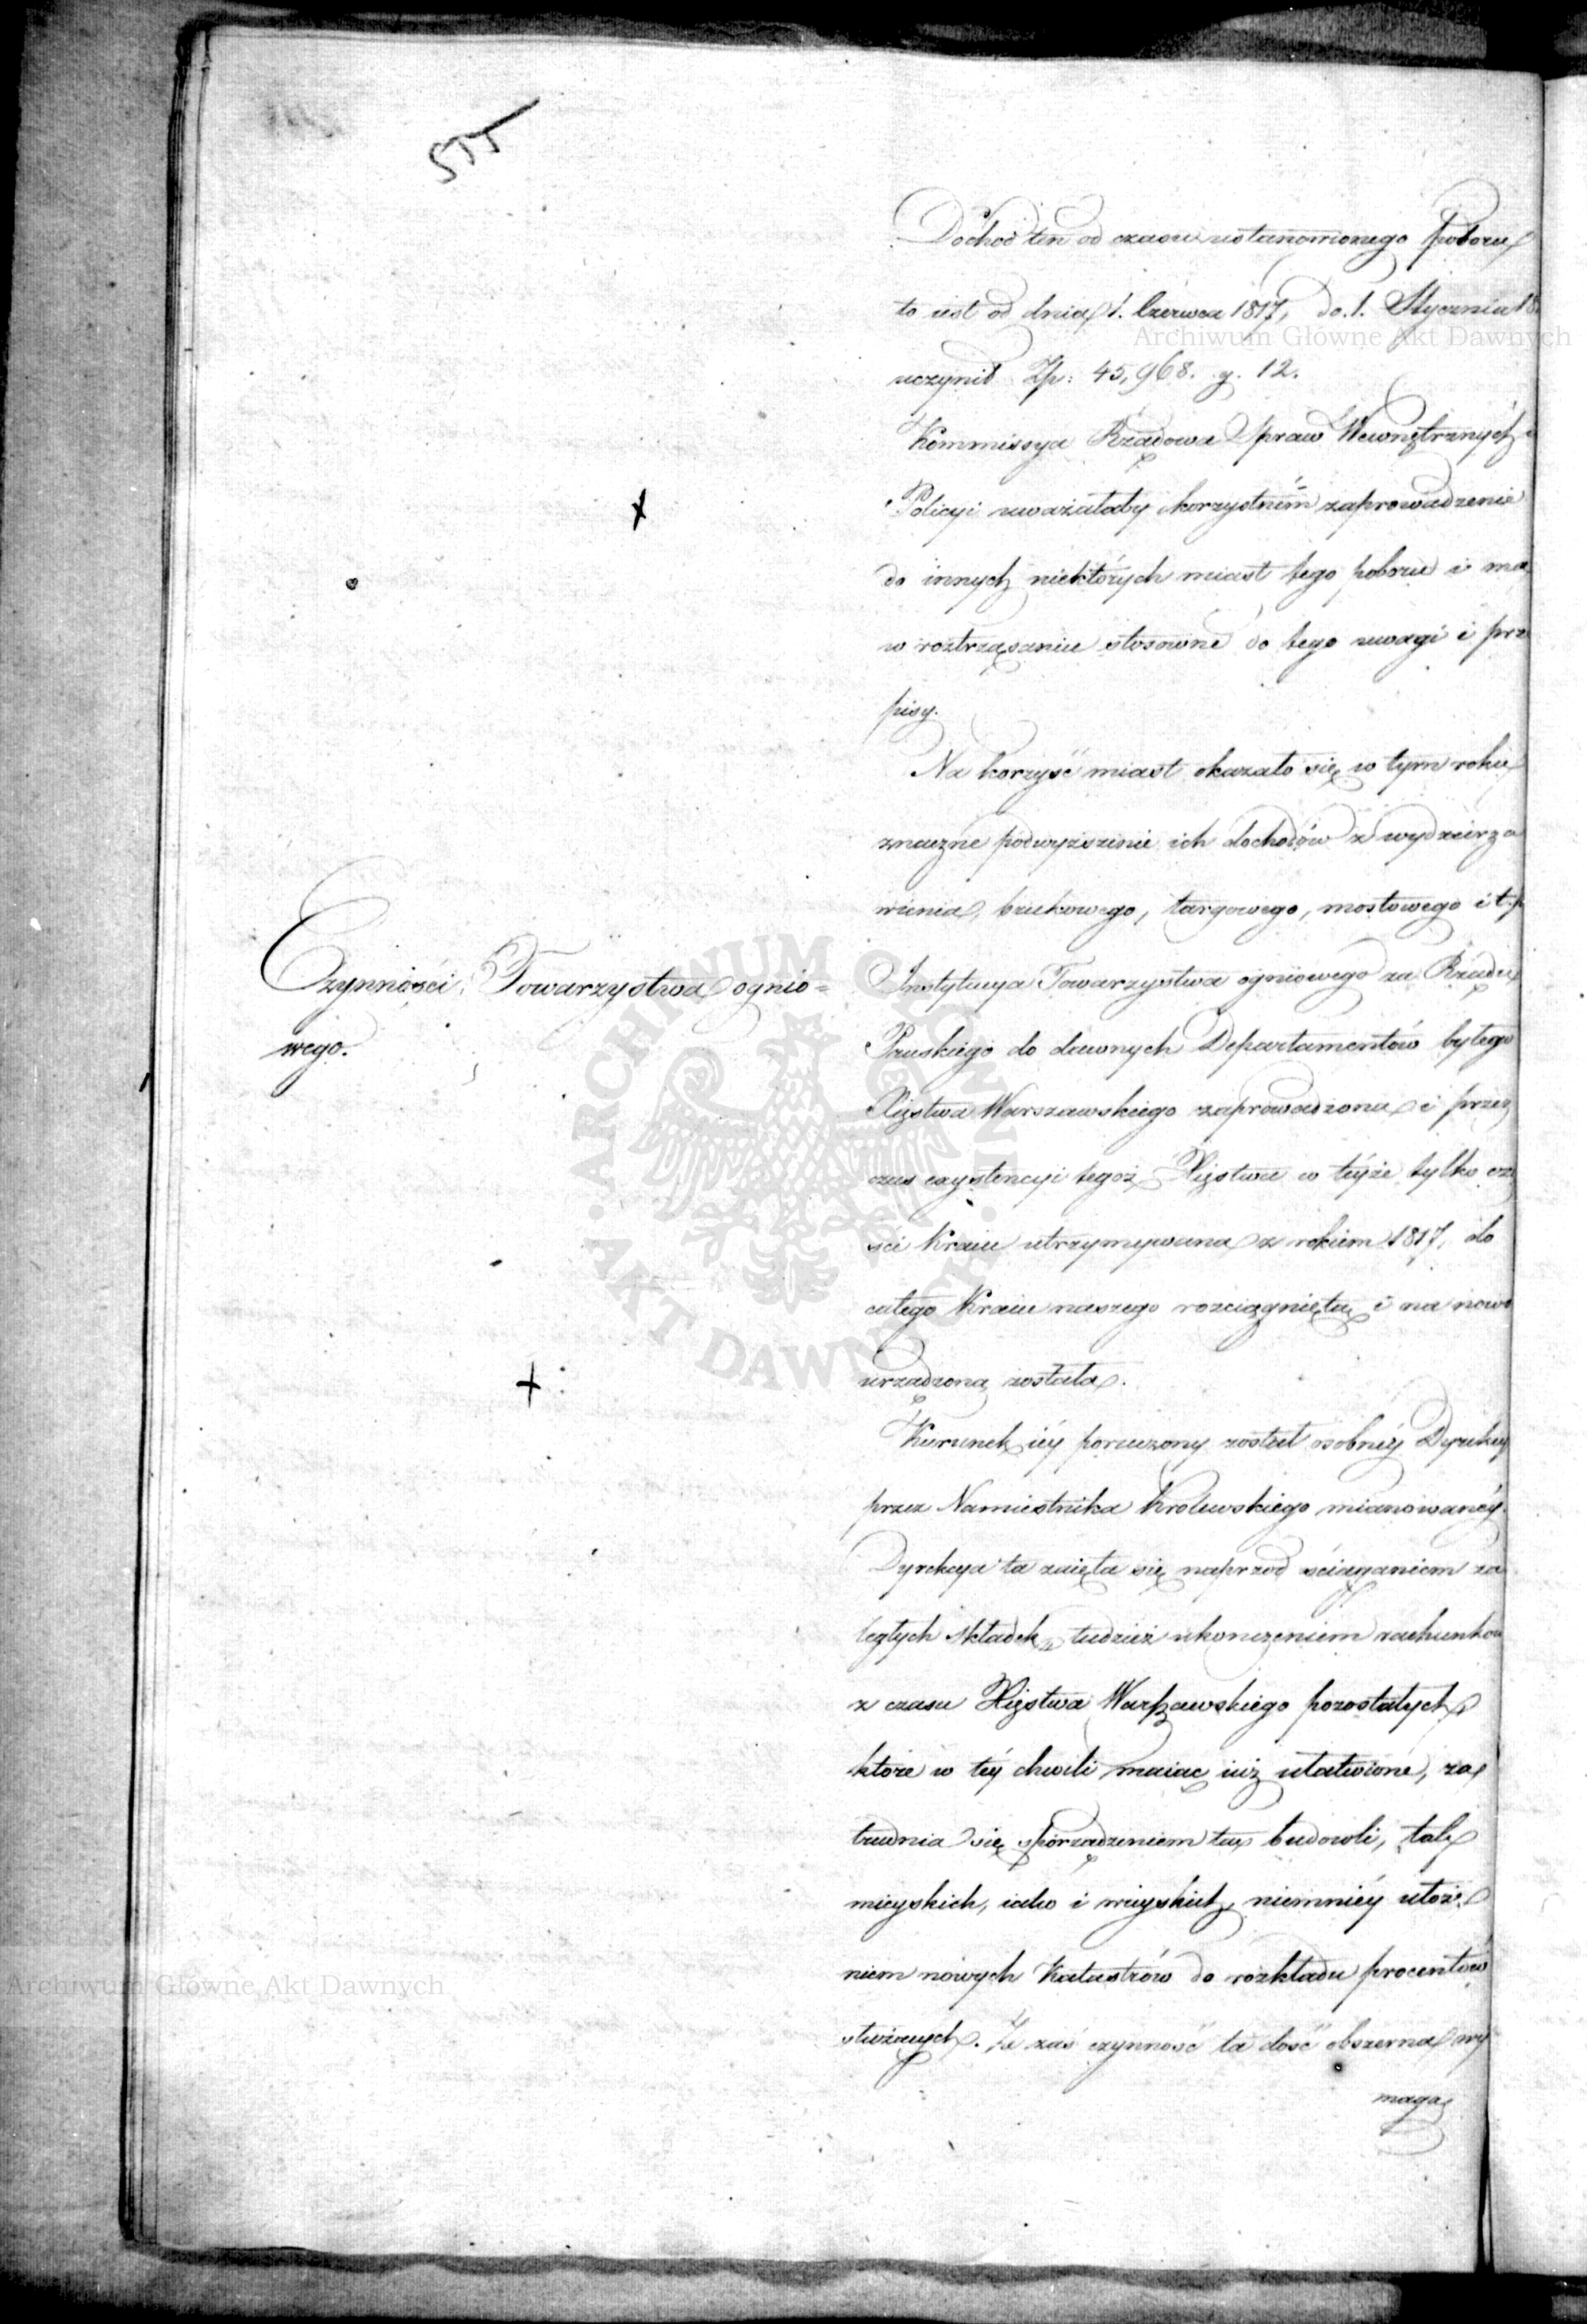 555
Dochod ten od czasu ustanowionego poboru
to iest od dnia 1. Czerwca 1817, do. 1. Stycznia 18
uczynił Zp: 45,968. g. 12.
Kommissya Rządowa Spraw Wewnętrznych i
Policyi uważałaby korzystném zaprowadzenie
do innych niektórych miast tego poboru i ma
w roztrząsaniu stosowne do tego uwagi i prze
pisy.
Na korzyść miast okazało się w tym roku
znaczne podwyższenie ich dochodów z wydzierża
wienia, brukowego, targowego, mostowego i t.p
Czynności Towarzystwa ognio=
wego.
Instytucya Towarzystwa ogniowego za Rządu
Pruskiego do dawnych Departamentów byłego
Xięstwa Warszawskiego zaprowadzona i przez
czas exystencyi tegoż Xięstwa w téyże tylko czę
ści Kraiu utrzymywana z rokiem 1817, do
całego Kraiu naszego rozciągniętą i na nowo
urządzoną została.
Kierunek iéy poruczony został osobnéy Dyrekcy
przez Namiestnika Królewskiego mianowanéy.
Dyrekcya ta zaięła się naprzod ściąganiem za
ległych składek, tudzież ukończeniem rachunków
z czasu Xięstwa Warszawskiego pozostałych,
które w téy chwili maiąc iuż ułatwione, za
trudnia się sporządzeniem tax budowli, tak
mieyskich, iako i wieyskich, niemniéy ułoże
niem nowych Katastrów do rozkładu procentów
służących. Że zaś czynność ta dość obszerna wy
maga
Archiwum Główne Akt Dawnych
ARCHIWUM GŁÓWNE · AKT DAWNYCH ·
Archiwum Główne Akt Dawnych